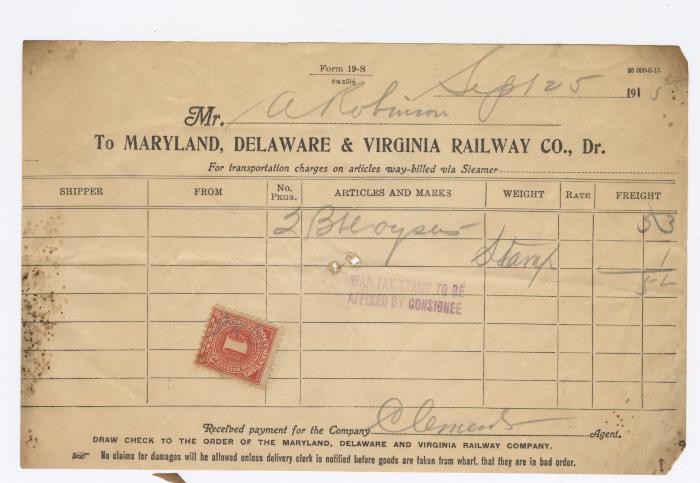 Form 19-S
8½x5½
85 000-6-15
Sept 25 1915
Mr. A Robinson
To MARYLAND, DELAWARE & VIRGINIA RAILWAY CO., Dr.
For transportation charges on articles way-billed via Steamer
SHIPPER FROM No. PKGS. ARTICLES AND MARKS WEIGHT RATE FREIGHT
53
Stamp 1
WAR TAX STAMP TO BE
AFFIXED BY CONSIGNEE
1
Received payment for the Company Clements Agent.
DRAW CHECK TO THE ORDER OF THE MARYLAND, DELAWARE AND VIRGINIA RAILWAY COMPANY.
No claims for damages will be allowed unless delivery clerk is notified before goods are taken from wharf, that they are in bad order.